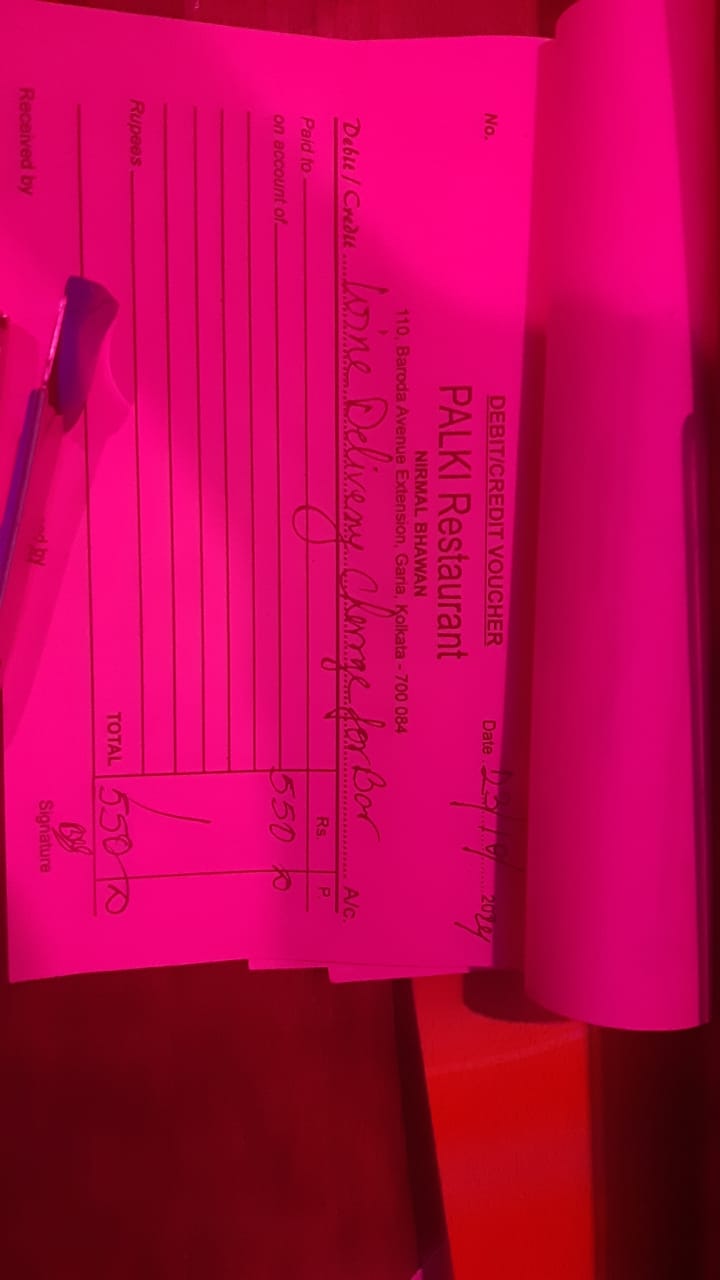 DEBIT/CREDIT VOUCHER
No. Date 23/10/2024
PALKI Restaurant
NIRMAL BHAWAN
110, Baroda Avenue Extension, Garia, Kolkata - 700 084
Debit / Credit Wine Delivery Charge for Bar A/c.
Paid to Rs. P.
on account of 550
Rupees
TOTAL 550
Received by Signature